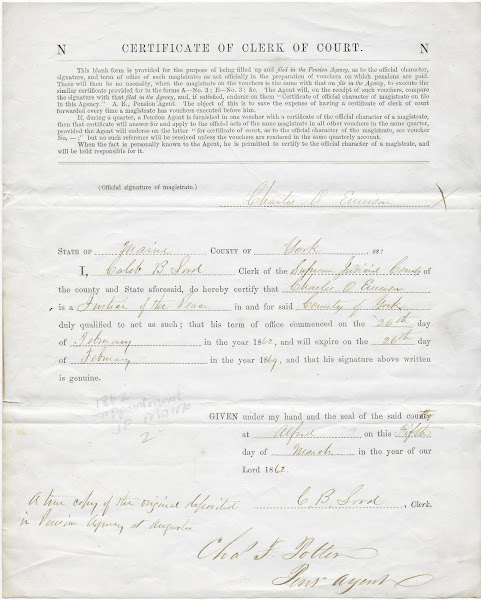 N CERTIFICATE OF CLERK OF COURT. N
This blank form is provided for the purpose of being filled up and filed in the Pension Agency, as to the official character,
signature, and term of office of such magistrates as act officially in the preparation of vouchers on which pensions are paid.
There will then be no necessity, when the magistrate on the vouchers is the same with that on file in the agency, to execute the
similar certificate provided for in the forms A—No. 3; E—No. 3; &c. The Agent will, on the receipt of such vouchers, compare
the signature with that filed in the agency, and, if satisfied, endorse on them "Certificate of official character of magistrate on file
in this Agency." A. B., Pension Agent. The object of this is to save the expense of having a certificate of clerk of court
forwarded every time a magistrate has vouchers executed before him.
If, during a quarter, a Pension Agent is furnished in one voucher with a certificate of the official character of a magistrate,
then that certificate will answer for and apply to the official acts of the same magistrate in all other vouchers in the same quarter,
provided the Agent will endorse on the latter "for certificate of court, as to the official character of the magistrate, see voucher
No. —;" but no such reference will be received unless the vouchers are rendered in the same quarterly account.
When the fact is personally known to the Agent, he is permitted to certify to the official character of a magistrate, and
will be held responsible for it.
(Official signature of magistrate.)
Charles O Emerson X
STATE OF Maine COUNTY OF York ss:
I, Caleb B. Lord Clerk of the Supreme Judicial Court of
the county and State aforesaid, do hereby certify that Charles O Emerson
is a Justice of the Peace in and for said County of York
duly qualified to act as such; that his term of office commenced on the 26th day
of February in the year 1862, and will expire on the 26th day
of February in the year 1869, and that his signature above written
is genuine.
1862
appointment
J.P. Maine
2
GIVEN under my hand and the seal of the said county
at Alfred on this Fifth
day of March in the year of our
Lord 1862.
C. B. Lord, Clerk.
A true copy of the original deposited
in Pension Agency at Augusta
Chas F Potter
Pens Agent